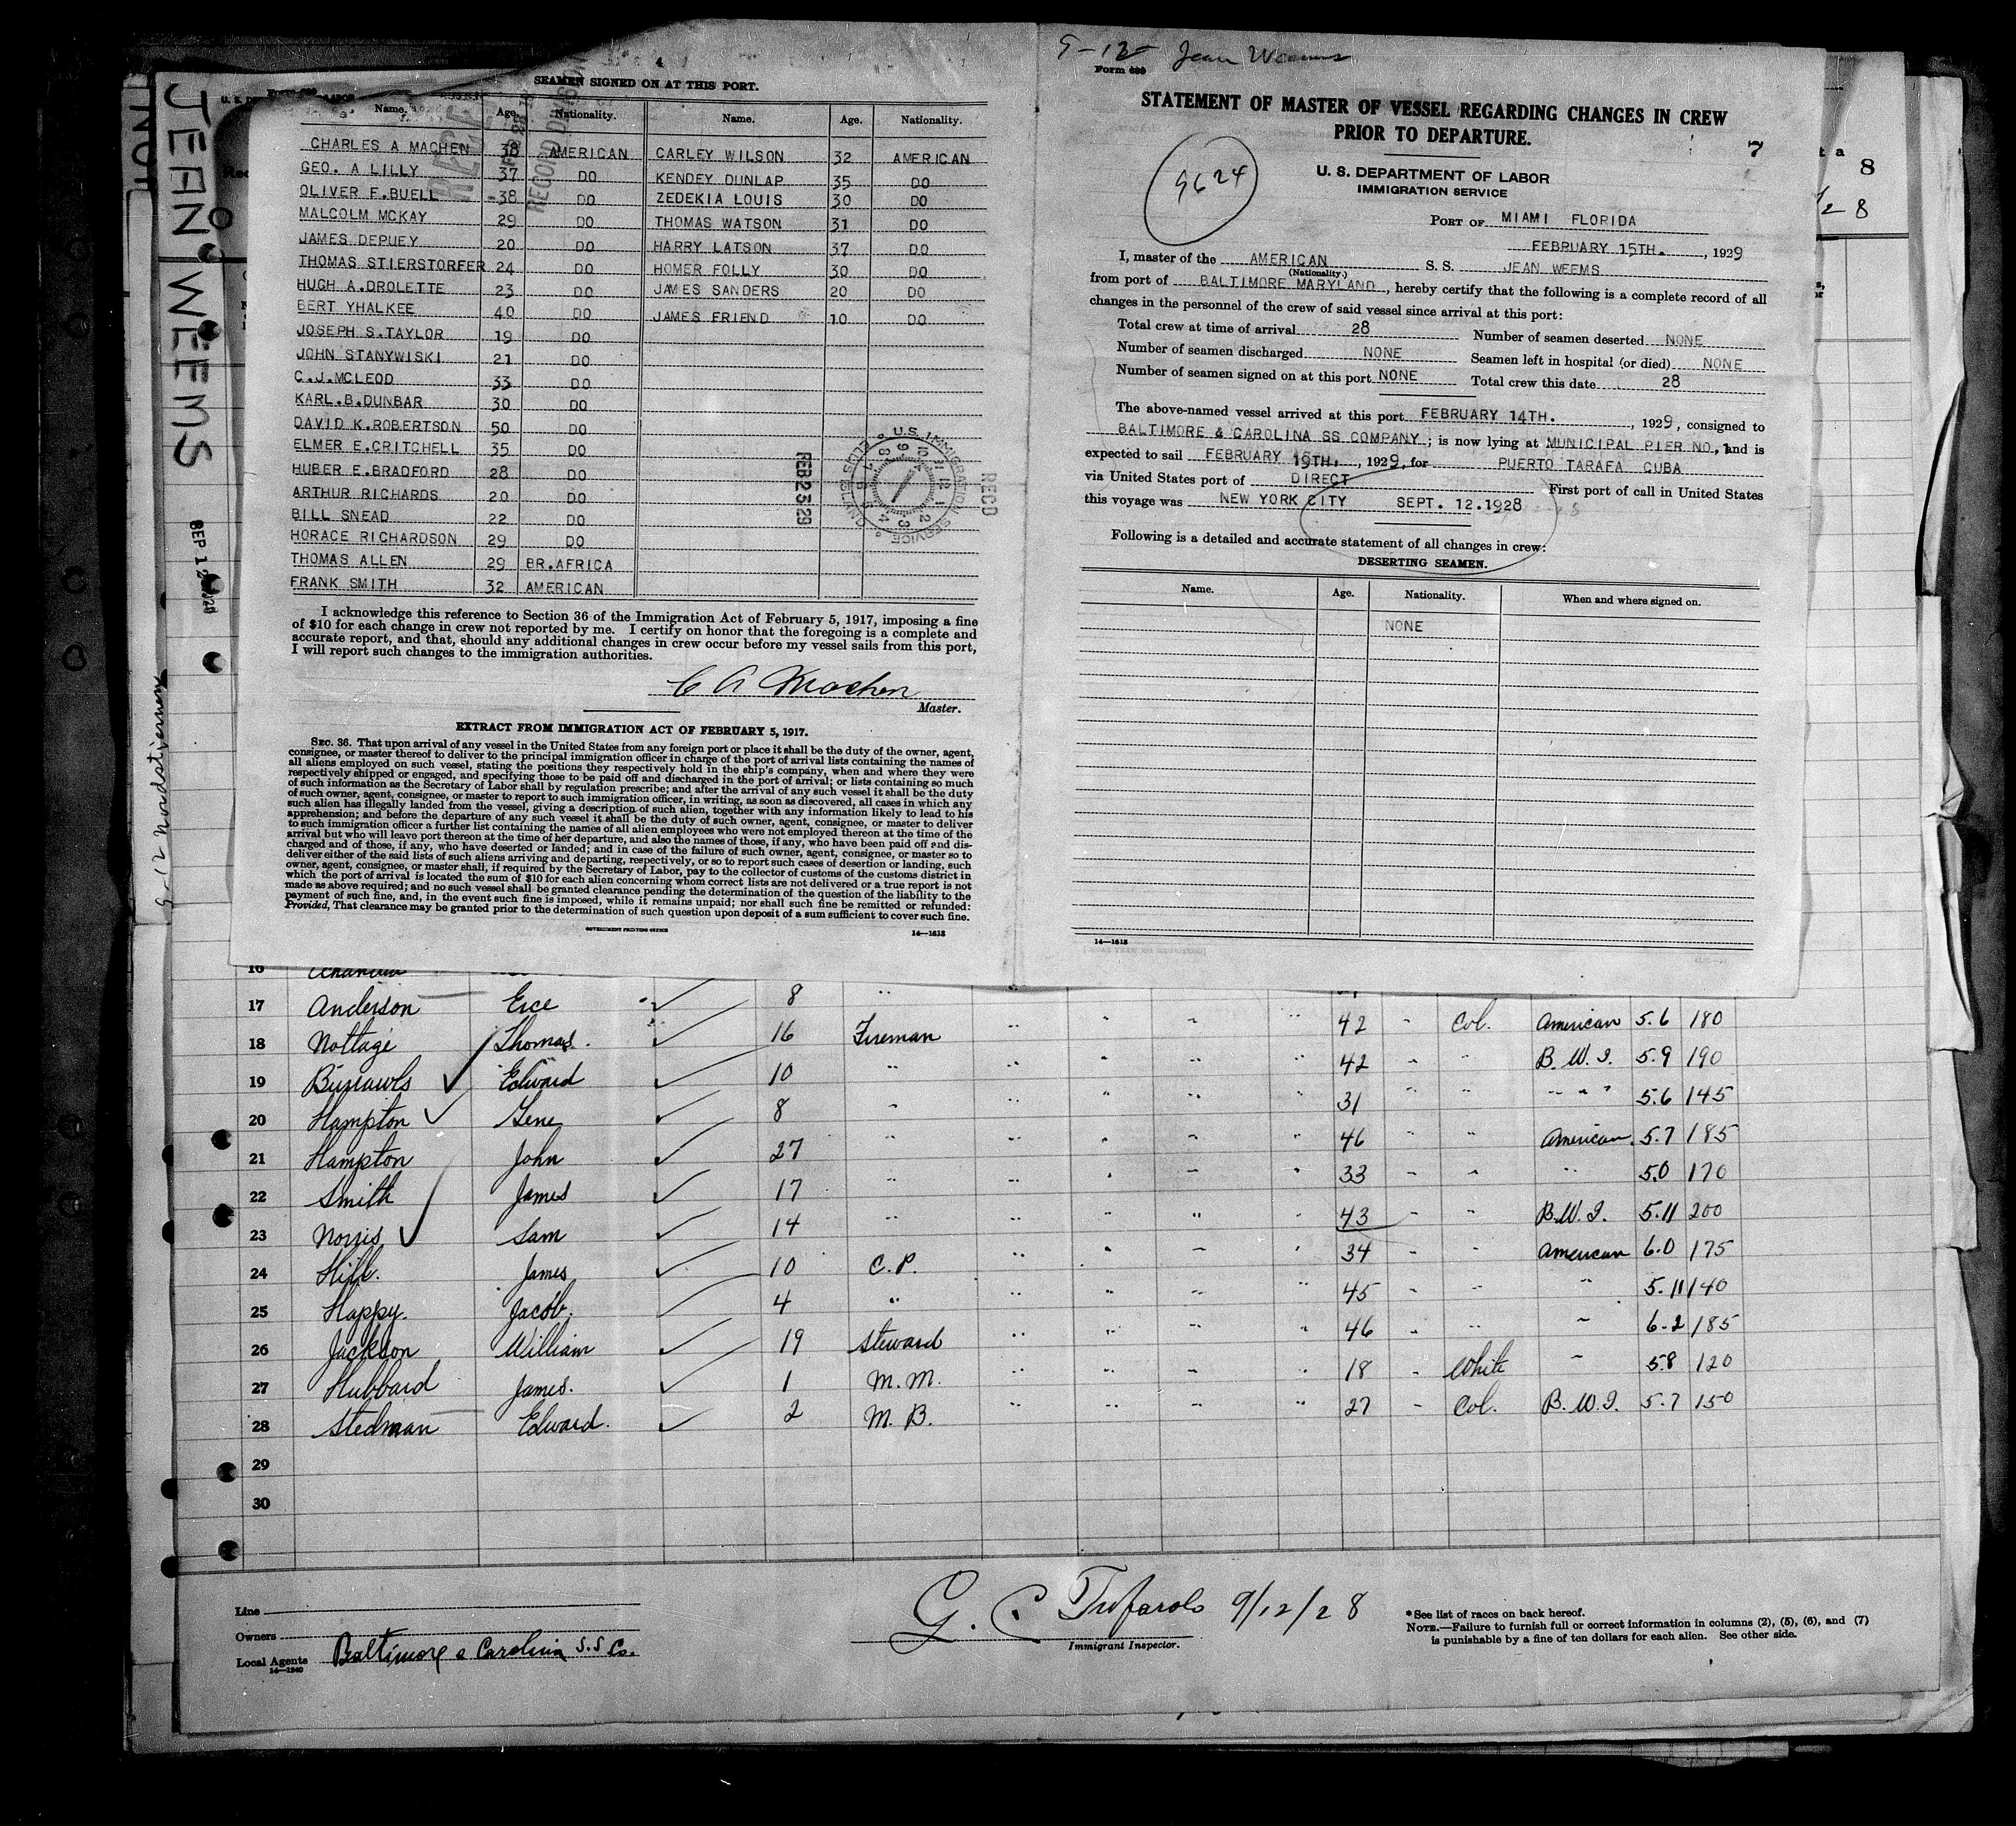 SEAMEN SIGNED ON AT THIS PORT.
Name. Age. Nationality. Name. Age. Nationality.
CHARLES A MACHEN 38 AMERICAN CARLEY WILSON 32 AMERICAN
GEO. A LILLY 37 DO KENDEY DUNLAP 35 DO
OLIVER F.BUELL 38 DO ZEDEKIA LOUIS 30 DO
MALCOLM MCKAY 29 DO THOMAS WATSON 31 DO
JAMES DEPUEY 20 DO HARRY LATSON 37 DO
THOMAS STIERSTORFER 24 DO HOMER FOLLY 30 DO
HUGH A.DROLETTE 23 DO JAMES SANDERS 20 DO
BERT YHALKEE 40 DO JAMES FRIEND 10 DO
JOSEPH S.TAYLOR 19 DO
JOHN STANYWISKI 21 DO
C.J.MCLEOD 33 DO
KARL.B.DUNBAR 30 DO
DAVID K.ROBERTSON 50 DO
ELMER E.CRITCHELL 35 DO
HUBER E.BRADFORD 28 DO
ARTHUR RICHARDS 20 DO
BILL SNEAD 22 DO
HORACE RICHARDSON 29 DO
THOMAS ALLEN 29 BR.AFRICA
FRANK SMITH 32 AMERICAN
I acknowledge this reference to Section 36 of the Immigration Act of February 5, 1917, imposing a fine
of $10 for each change in crew not reported by me. I certify on honor that the foregoing is a complete and
accurate report, and that, should any additional changes in crew occur before my vessel sails from this port,
I will report such changes to the immigration authorities.
C A Machen
Master.
EXTRACT FROM IMMIGRATION ACT OF FEBRUARY 5, 1917.
SEC. 36. That upon arrival of any vessel in the United States from any foreign port or place it shall be the duty of the owner, agent,
consignee, or master thereof to deliver to the principal immigration officer in charge of the port of arrival lists containing the names of
all aliens employed on such vessel, stating the positions they respectively hold in the ship's company, when and where they were
respectively shipped or engaged, and specifying those to be paid off and discharged in the port of arrival; or lists containing so much
of such information as the Secretary of Labor shall by regulation prescribe; and after the arrival of any such vessel it shall be the duty
of such owner, agent, consignee, or master to report to such immigration officer, in writing, as soon as discovered, all cases in which any
such alien has illegally landed from the vessel, giving a description of such alien, together with any information likely to lead to his
apprehension; and before the departure of any such vessel it shall be the duty of such owner, agent, consignee, or master to deliver
to such immigration officer a further list containing the names of all alien employees who were not employed thereon at the time of the
arrival but who will leave port thereon at the time of her departure, and also the names of those, if any, who have been paid off and dis-
charged and of those, if any, who have deserted or landed; and in case of the failure of such owner, agent, consignee, or master so to
deliver either of the said lists of such aliens arriving and departing, respectively, or so to report such cases of desertion or landing, such
owner, agent, consignee, or master shall, if required by the Secretary of Labor, pay to the collector of customs of the customs district in
which the port of arrival is located the sum of $10 for each alien concerning whom correct lists are not delivered or a true report is not
made as above required; and no such vessel shall be granted clearance pending the determination of the question of the liability to the
payment of such fine, and, in the event such fine is imposed, while it remains unpaid; nor shall such fine be remitted or refunded:
Provided, That clearance may be granted prior to the determination of such question upon deposit of a sum sufficient to cover such fine.
GOVERNMENT PRINTING OFFICE 14—1613
U.S. IMMIGRATION SERVICE
REC'D
JEAN WEEMS
SEP 12 1928
9-12 Jean Weems
Form 689
STATEMENT OF MASTER OF VESSEL REGARDING CHANGES IN CREW
PRIOR TO DEPARTURE.
7
9624
U. S. DEPARTMENT OF LABOR
IMMIGRATION SERVICE
PORT OF MIAMI FLORIDA
FEBRUARY 15TH. , 1929
I, master of the AMERICAN S. S. JEAN WEEMS
(Nationality.)
from port of BALTIMORE MARYLAND , hereby certify that the following is a complete record of all
changes in the personnel of the crew of said vessel since arrival at this port:
Total crew at time of arrival 28 Number of seamen deserted NONE
Number of seamen discharged NONE Seamen left in hospital (or died) NONE
Number of seamen signed on at this port NONE Total crew this date 28
The above-named vessel arrived at this port FEBRUARY 14TH. , 1929, consigned to
BALTIMORE & CAROLINA SS COMPANY ; is now lying at MUNICIPAL PIER NO, 1 and is
expected to sail FEBRUARY 19TH. , 1929, for PUERTO TARAFA CUBA
via United States port of DIRECT First port of call in United States
this voyage was NEW YORK CITY SEPT. 12.1928
Following is a detailed and accurate statement of all changes in crew:
DESERTING SEAMEN.
Name. Age. Nationality. When and where signed on.
NONE
14—1613
8
17 Anderson 8 "
18 Nottage Thomas. 16 Fireman 42 Col. American 5.6 180
19 Edward 10 " 42 " B.W.I. 5.9 190
20 Hampton Gene 8 " 31 " " 5.6 145
21 Hampton John 27 " 46 " American 5.7 185
22 Smith James 17 " 33 " " 5.0 170
23 Norris Sam 14 " 43 " B.W.I. 5.11 200
24 Hill. James 10 C.P. 34 " American 6.0 175
25 Happy. Jacob. 4 " 45 " " 5.11 140
26 Jackson William 19 Steward 46 " " 6-2 185
27 Hubbard James. 1 M.M. 18 White " 5.8 120
28 Stedman Edward. 2 M.B. 27 Col. B.W.I. 5.7 150
29
30
Line
Owners
Local Agents Baltimore & Carolina S.S Co.
14—1240
9/12/28
Immigrant Inspector.
*See list of races on back hereof.
NOTE.—Failure to furnish full or correct information in columns (2), (5), (6), and (7)
is punishable by a fine of ten dollars for each alien. See other side.